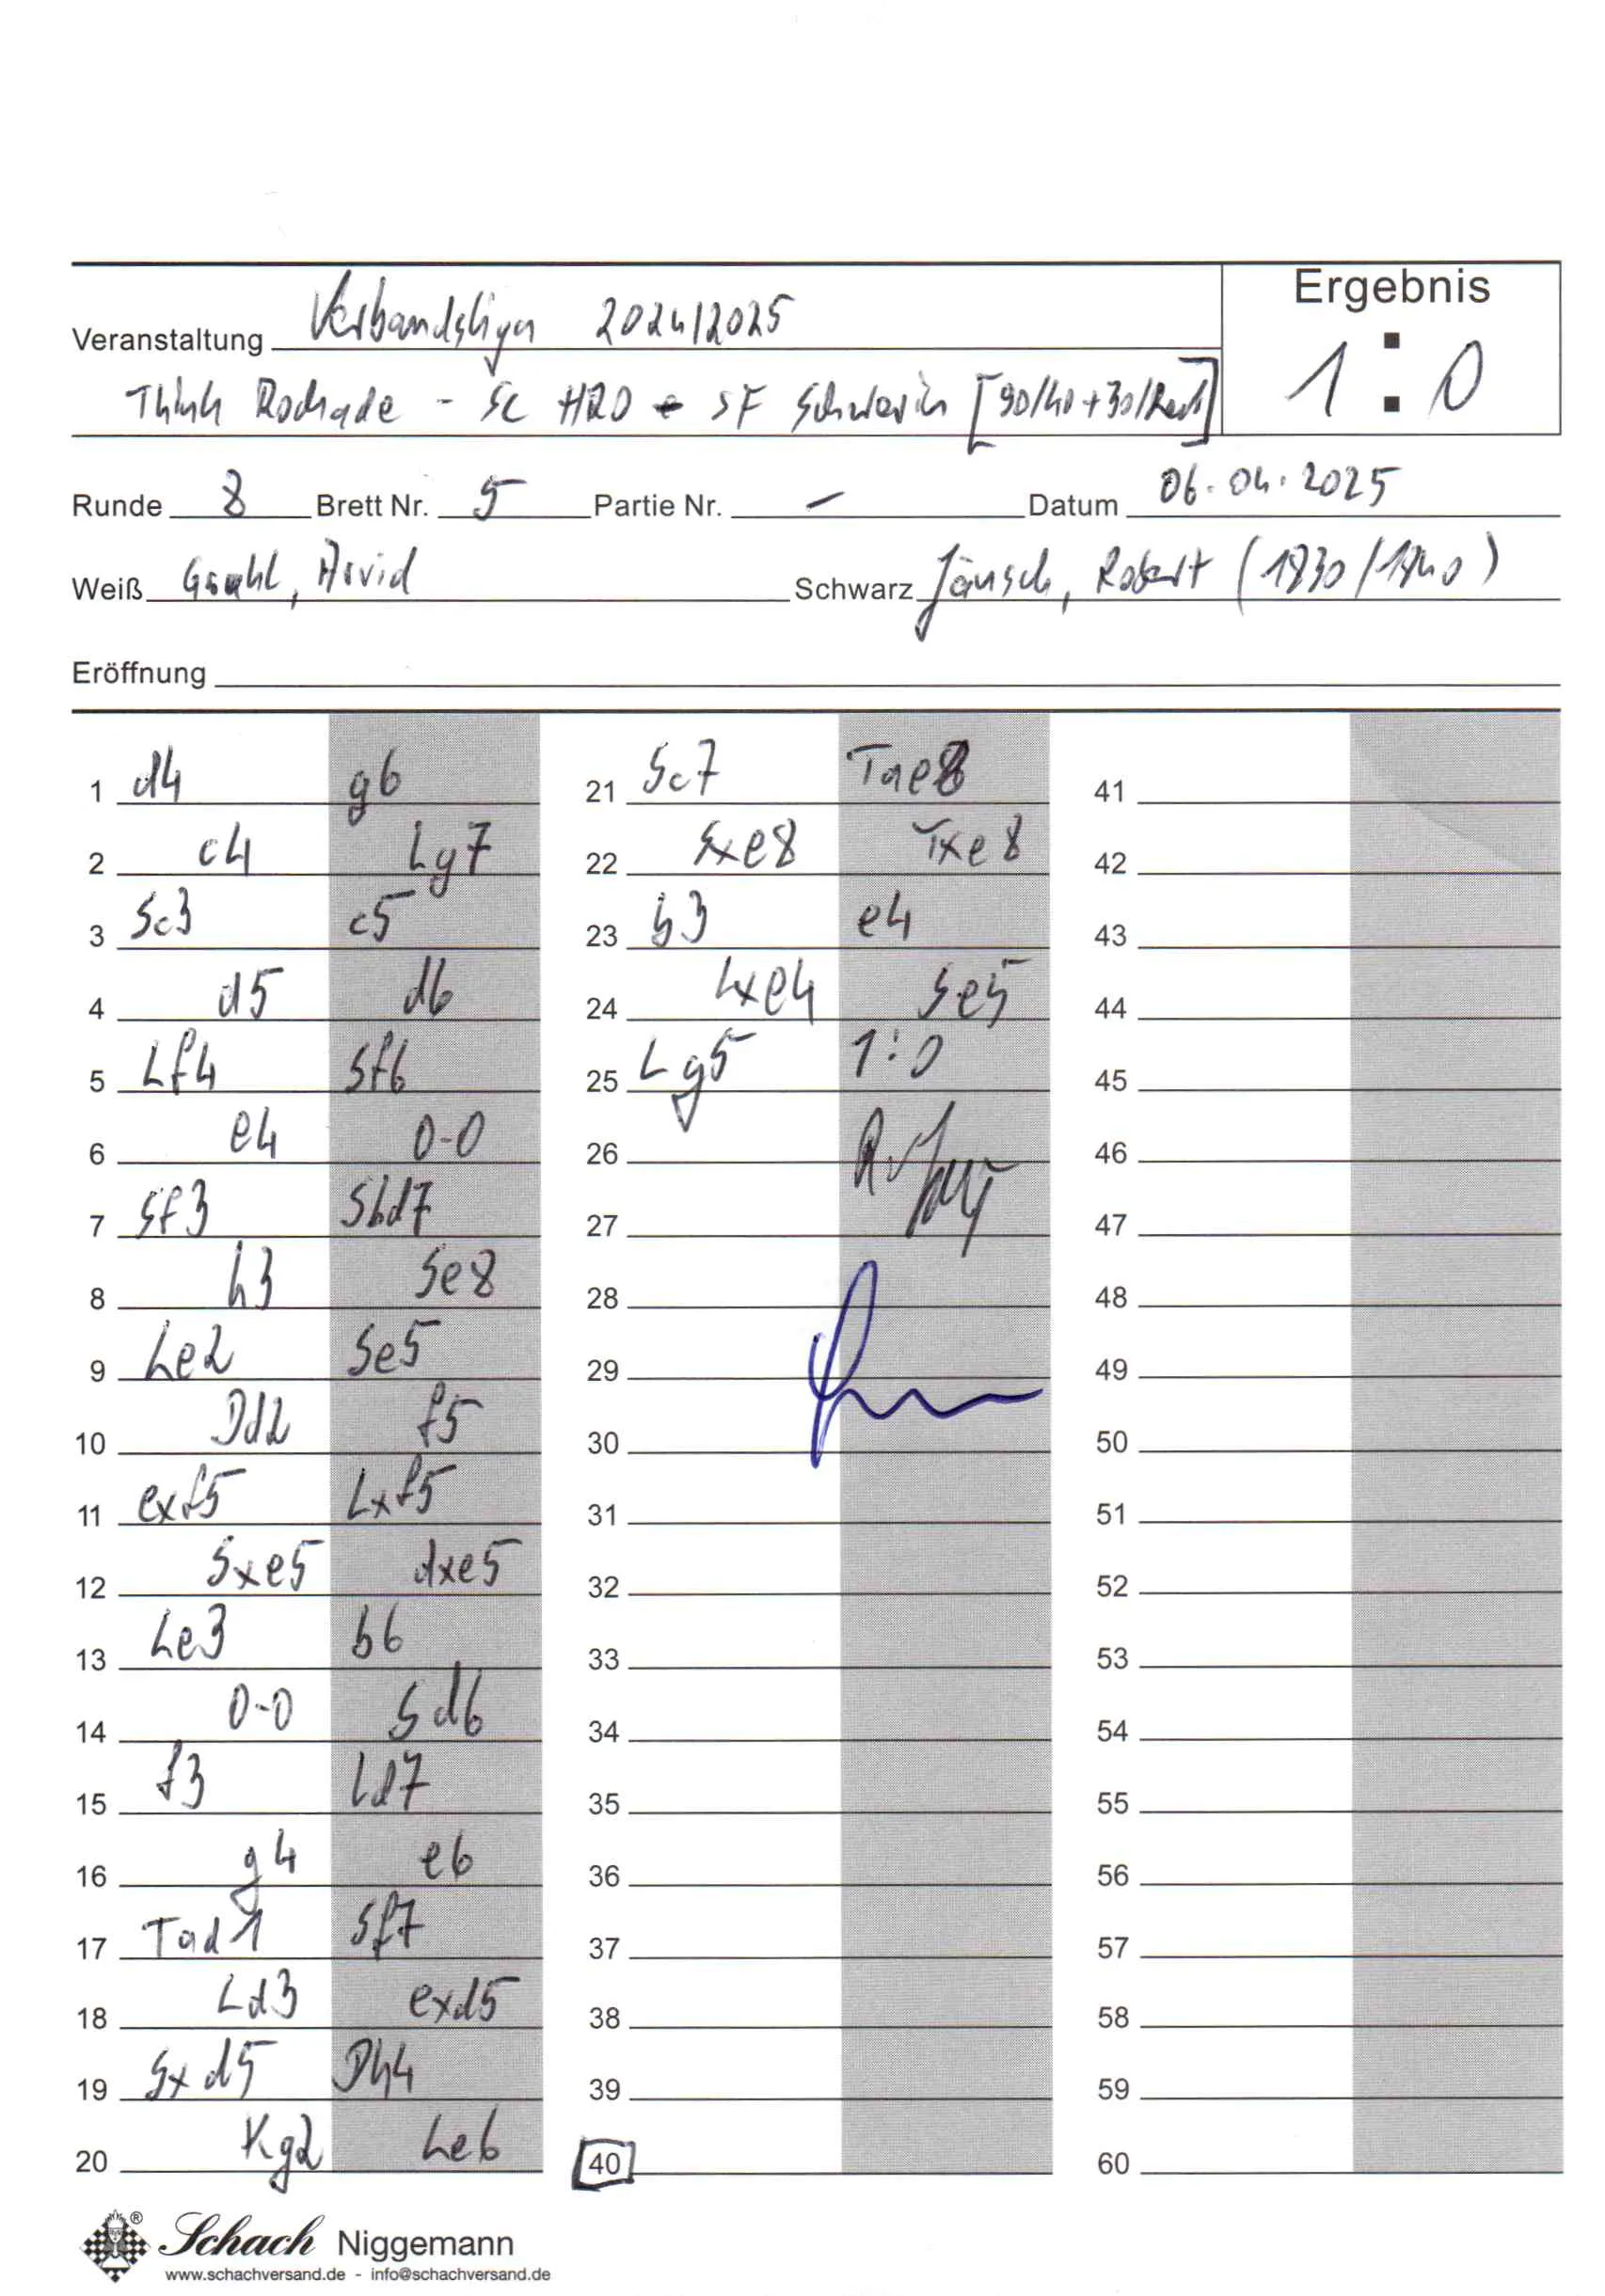 Ergebnis
1 : 0
Veranstaltung Verbandsliga 2024/2025
Think Rochade - SC HRO - SF Schwerin [90/40+30/Rest]
Runde 8 Brett Nr. 5 Partie Nr. – Datum 06.04.2025
Weiß Arvid Schwarz Jänsch, Robert (1830/1840)
Eröffnung
1 d4 g6
2 c4 Lg7
3 Sc3 c5
4 d5 d6
5 Lf4 Sf6
6 e4 0-0
7 Sf3 Sbd7
8 h3 Se8
9 Le2 Se5
10 Dd2 f5
11 exf5 Lxf5
12 Sxe5 dxe5
13 Le3 b6
14 0-0 Sd6
15 f3 Ld7
16 g4 e6
17 Tad1 Sf7
18 Ld3 exd5
19 Sxd5 Dh4
20 Kg2 Le6
21 Sc7 Tae8
22 Sxe8 Txe8
23 b3 e4
24 Lxe4 Se5
25 Lg5 1:0
26
27
28
29
30
31
32
33
34
35
36
37
38
39
40
41
42
43
44
45
46
47
48
49
50
51
52
53
54
55
56
57
58
59
60
Schach Niggemann
www.schachversand.de - info@schachversand.de